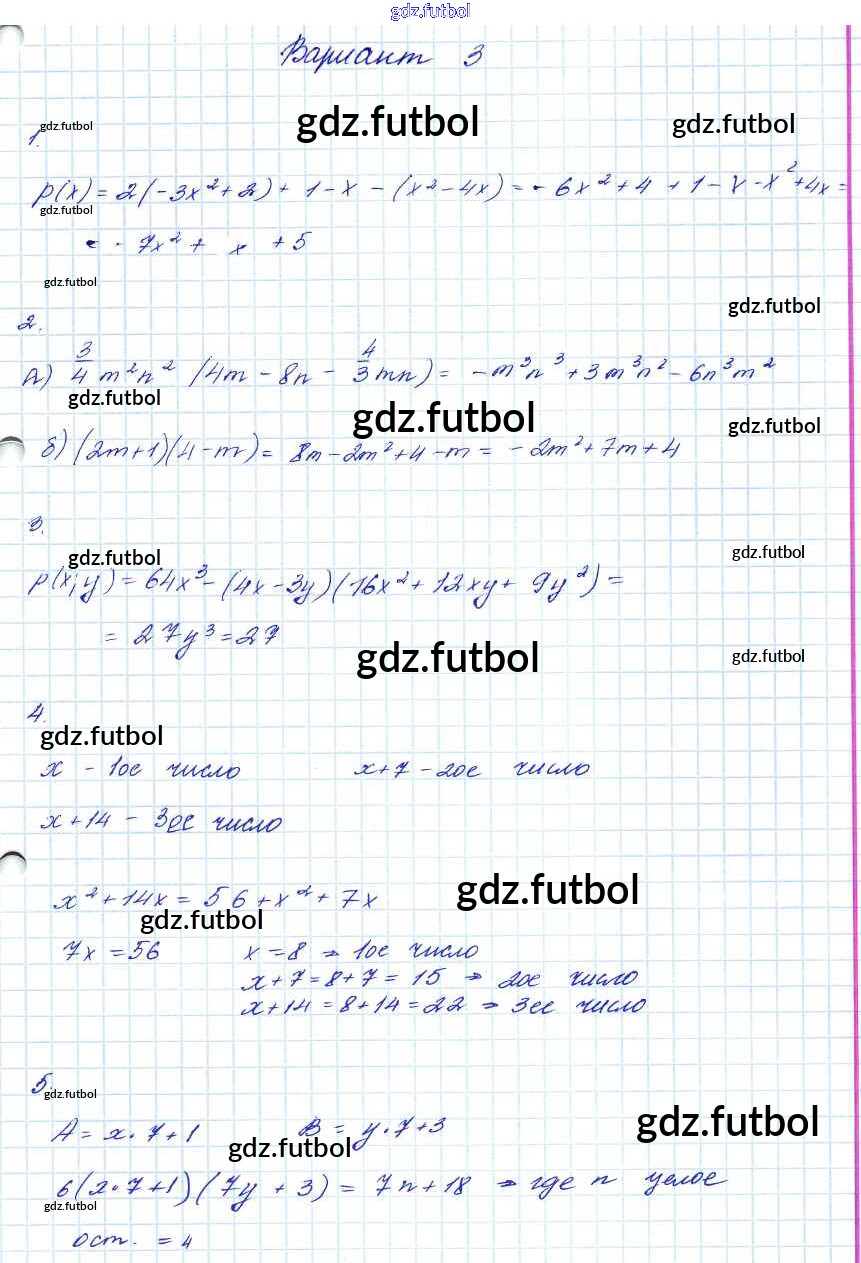 gdz.futbol
Вариант 3
1. gdz.futbol
gdz.futbol
gdz.futbol
p(x) = 2(-3x² + 2) + 1 - x - (x² - 4x) = - 6x² + 4 + 1 - x - x² + 4x =
gdz.futbol
= - 7x² + x + 5
gdz.futbol
gdz.futbol
2.
А) 3/4 m²n² (4m - 8n - 4/3 mn) = -m³n³ + 3m³n² - 6n³m²
gdz.futbol
gdz.futbol
gdz.futbol
б) (2m+1)(4-m) = 8m - 2m² + 4 - m = - 2m² + 7m + 4
3.
gdz.futbol
gdz.futbol
p(x;y) = 64x³ - (4x - 3y)(16x² + 12xy + 9y²) =
= 27y³ = 27
gdz.futbol
gdz.futbol
4.
gdz.futbol
x - 1ое число x+7 - 2ое число
x+14 - 3ее число
x² + 14x = 56 + x² + 7x
gdz.futbol
gdz.futbol
7x = 56 x = 8 → 1ое число
x+7 = 8+7 = 15 → 2ое число
x+14 = 8+14 = 22 → 3ее число
5.
gdz.futbol
A = x·7+1 B = y·7+3
gdz.futbol
gdz.futbol
6(x·7+1)(7y+3) = 7n+18 → где n целое
gdz.futbol
ост. = 4